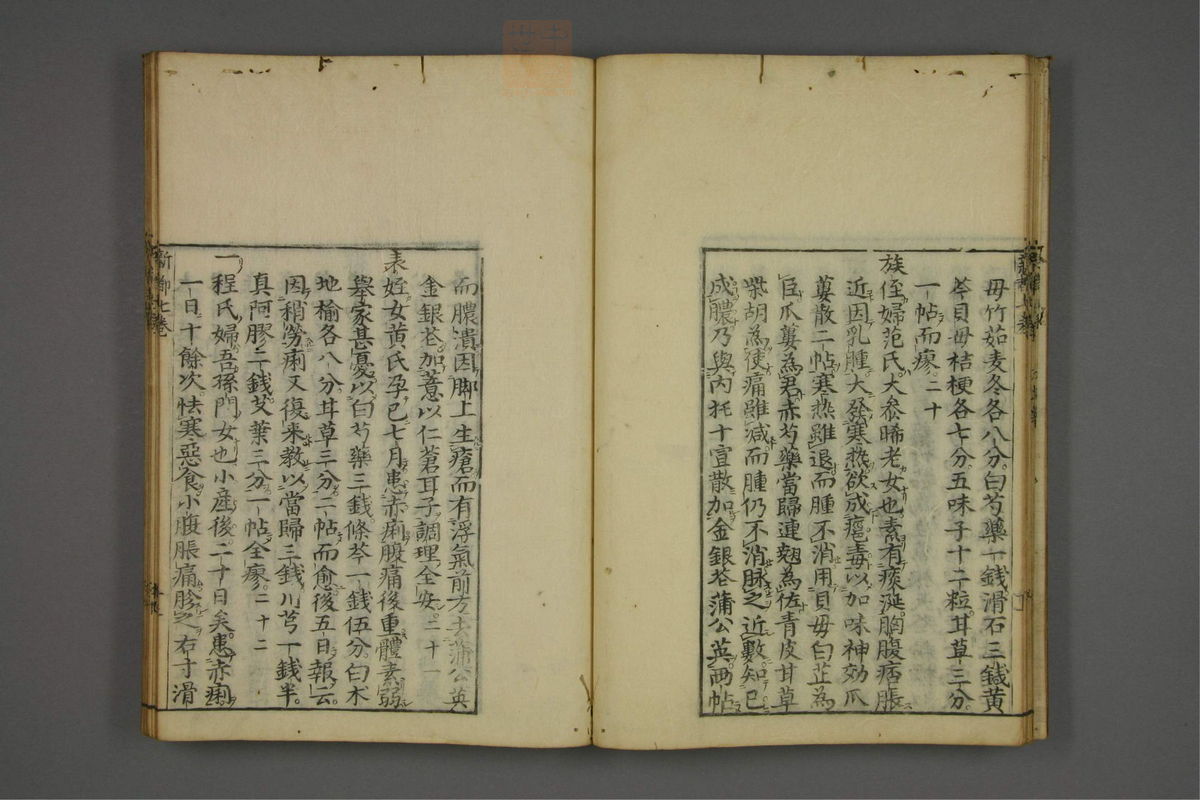 毋竹茹麦冬各八分。白芍藥一錢滑石三錢黄
芩貝毋桔梗各七分。五味子十二粒。甘草三分。
一帖而瘳。二十
族侄婦范氏。大参晞老女也素有痰涎。胸腹痞脹
近因乳腫大發寒熱欲成癰毒以加味神効瓜
蔞散二帖寒熱雖退而腫不消用貝毋白芷為
臣瓜蔞為君赤芍藥當歸連翹為佐青皮甘草
柴胡為使痛雖減而腫仍不消脉之近數。知已
成膿乃與内托十宣散加金銀花蒲公英兩帖
而膿潰因脚上生瘡而有浮氣前方去蒲公英
金銀花加薏以仁蒼耳子調理全安。二十一
表姪女黄氏孕已七月患赤痢腹痛後重體素弱
舉家甚憂以白芍藥三錢條芩一錢伍分。白木
地榆各八分甘草三分。二帖而愈後五日報云。
因稍勞痢又復来教以當歸三錢川芎一錢半。
真阿膠二錢艾葉三分。一帖全瘳。二十二
一程氏婦吾孫門女也小産後二十日矣。患赤痢
一日十餘次。怯寒惡食小腹脹痛胗之右寸滑